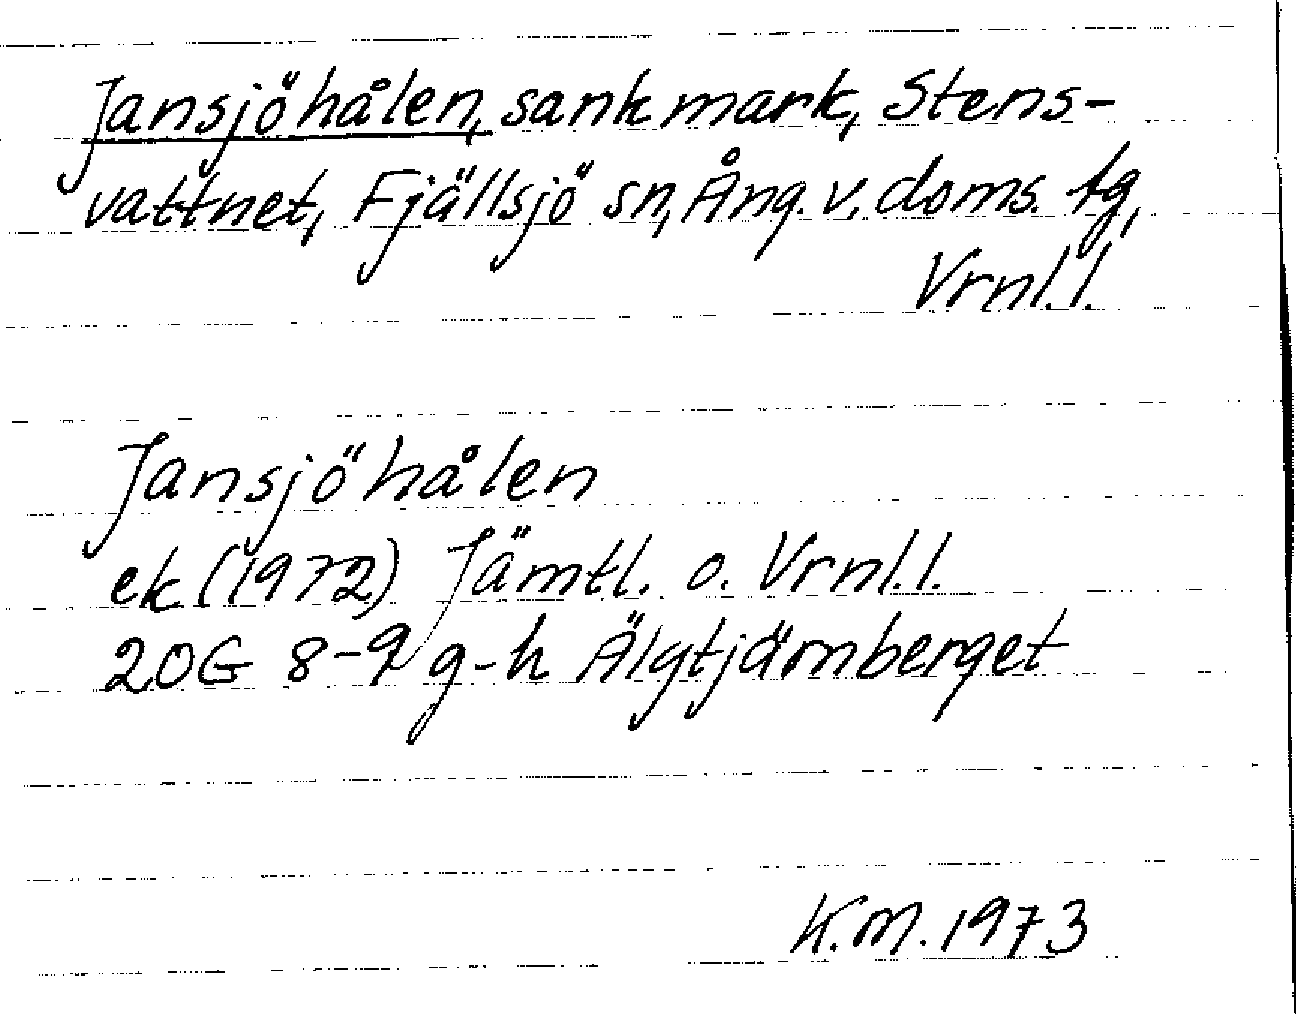 Jansjöhålen, sankmark, Stens-
vattnet, Fjällsjö sn, Ång. v. doms. tg,
Vrnl.l.
Jansjöhålen
ek (1972) Jämtl. o. Vrnl.l.
20G 8-9 g-h Älgtjärnberget
K.M. 1973